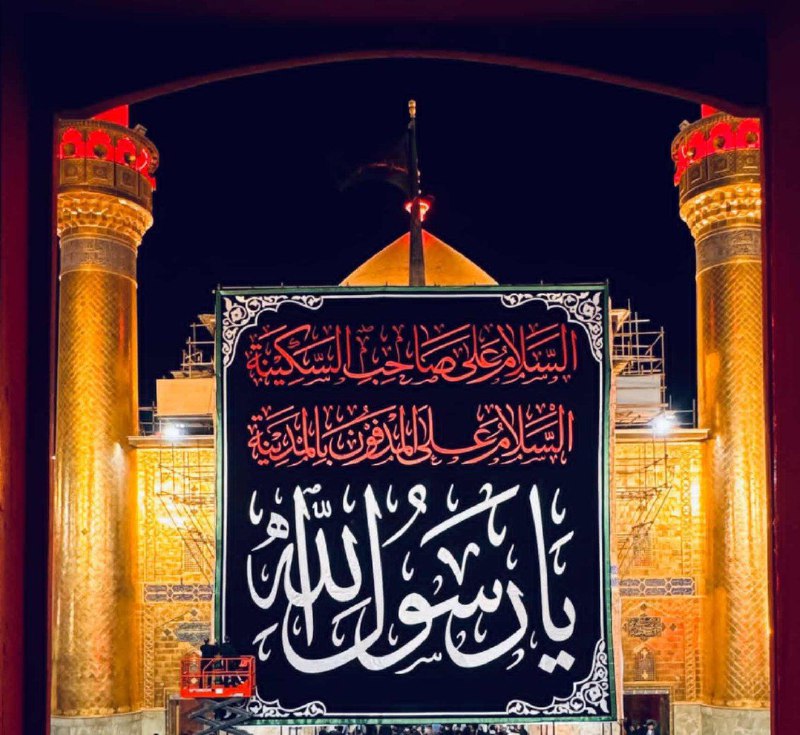 السَّلَامُ عَلَى صَاحِبِ السَّكِينَةِ
السَّلَامُ عَلَى الْمَدْفُونِ بِالْمَدِينَةِ
يَا رَسُولَ اللّٰه